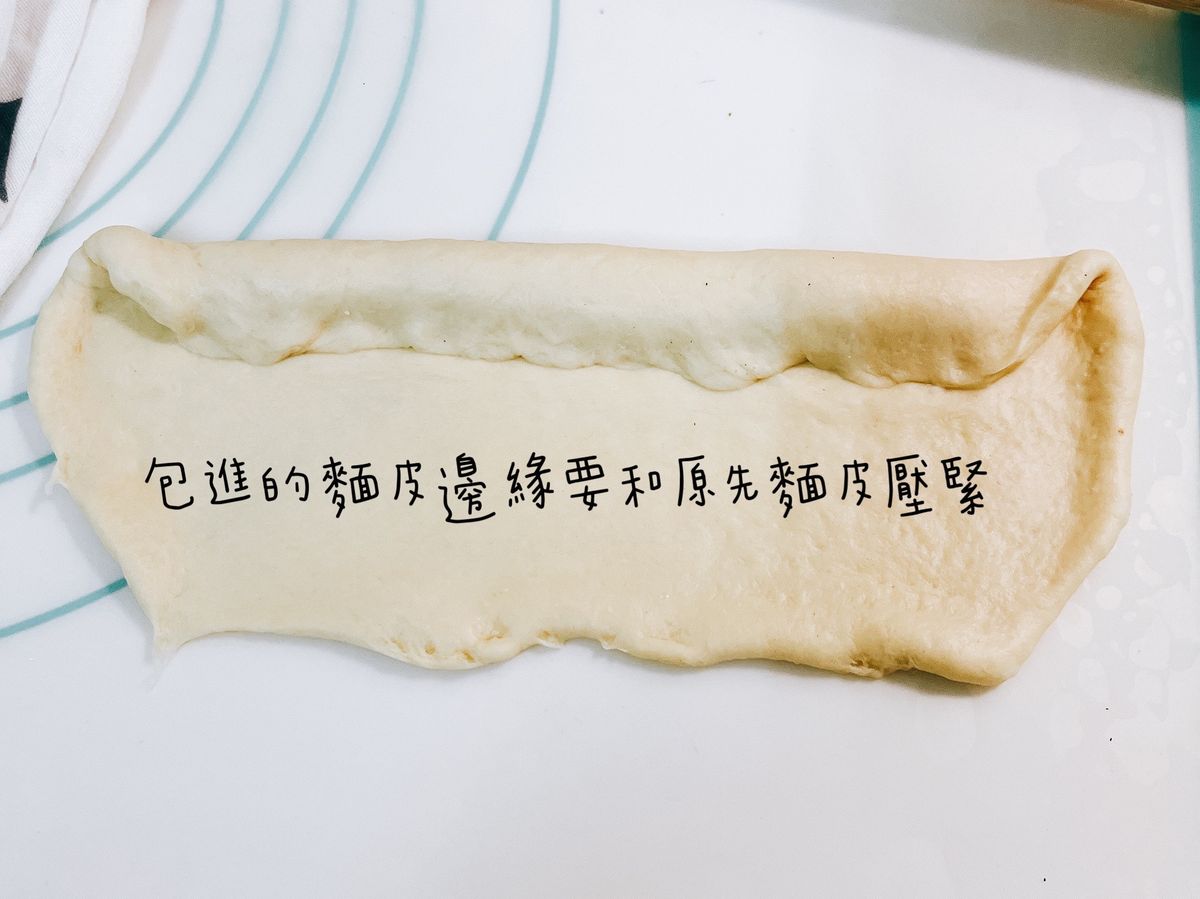 包進的麵皮邊緣要和原先麵皮壓緊